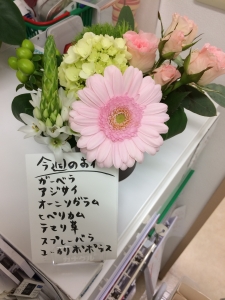 今回のお花
ガーベラ
アジサイ
オーニソガラム
ヒペリカム
テマリ草
スプレーバラ
ユーカリポポラス